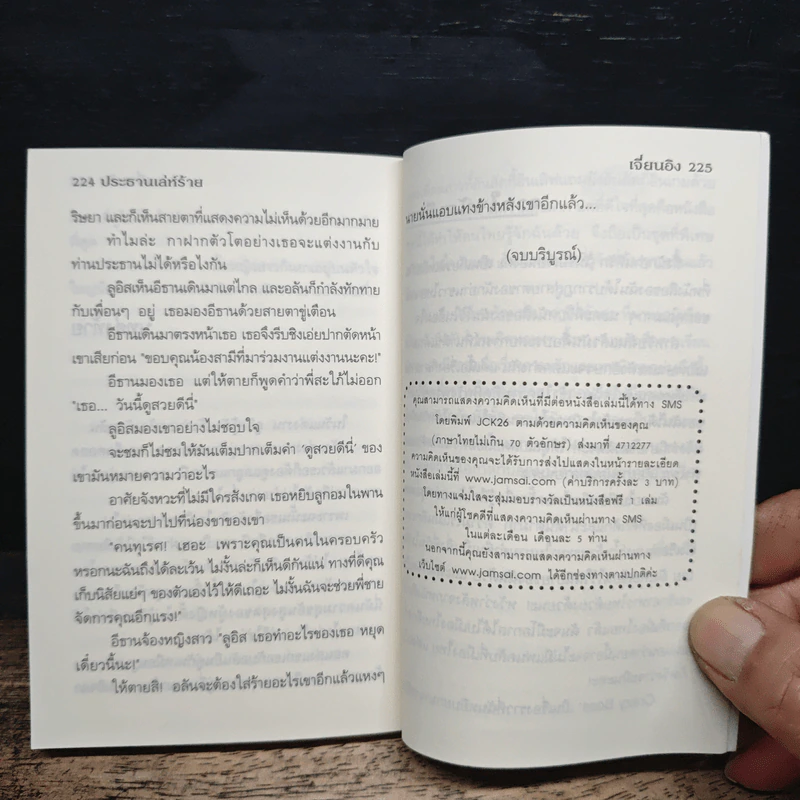 224 ประธานเล่ห์ร้าย
ริษยา และก็เห็นสายตาที่แสดงความไม่เห็นด้วยอีกมากมาย
ทำไมล่ะ กาฝากตัวโตอย่างเธอจะแต่งงานกับ
ท่านประธานไม่ได้หรือไงกัน
ลูอิสเห็นอีธานเดินมาแต่ไกล และอลันก็กำลังทักทาย
กับเพื่อนๆ อยู่ เธอมองอีธานด้วยสายตาขู่เตือน
อีธานเดินมาตรงหน้าเธอ เธอจึงรีบชิงเอ่ยปากตัดหน้า
เขาเสียก่อน "ขอบคุณน้องสามีที่มาร่วมงานแต่งงานนะคะ!"
อีธานมองเธอ แต่ให้ตายก็พูดคำว่าพี่สะใภ้ไม่ออก
"เธอ... วันนี้ดูสวยดีนี่"
ลูอิสมองเขาอย่างไม่ชอบใจ
จะชมก็ไม่ชมให้มันเต็มปากเต็มคำ 'ดูสวยดีนี่' ของ
เขามันหมายความว่าอะไร
อาศัยจังหวะที่ไม่มีใครสังเกต เธอหยิบลูกอมในพาน
ขึ้นมาก่อนจะปาไปที่น่องขาของเขา
"คนทุเรศ! เฮอะ เพราะคุณเป็นคนในครอบครัว
หรอกนะฉันถึงได้ละเว้น ไม่งั้นล่ะก็เห็นดีกันแน่ ทางที่ดีคุณ
เก็บนิสัยแย่ๆ ของตัวเองไว้ให้ดีเถอะ ไม่งั้นฉันจะช่วยพี่ชาย
จัดการคุณอีกแรง!"
อีธานจ้องหญิงสาว "ลูอิส เธอทำอะไรของเธอ หยุด
เดี๋ยวนี้นะ!"
ให้ตายสิ! อลันจะต้องใส่ร้ายอะไรเขาอีกแล้วแหงๆ
เจี่ยนอิง 225
นายนั่นแอบแทงข้างหลังเขาอีกแล้ว...
(จบบริบูรณ์)
คุณสามารถแสดงความคิดเห็นที่มีต่อหนังสือเล่มนี้ได้ทาง SMS
โดยพิมพ์ JCK26 ตามด้วยความคิดเห็นของคุณ
(ภาษาไทยไม่เกิน 70 ตัวอักษร) ส่งมาที่ 4712277
ความคิดเห็นของคุณจะได้รับการส่งไปแสดงในหน้ารายละเอียด
หนังสือเล่มนี้ที่ www.jamsai.com (ค่าบริการครั้งละ 3 บาท)
โดยทางแจ่มใสจะสุ่มมอบรางวัลเป็นหนังสือฟรี 1 เล่ม
ให้แก่ผู้โชคดีที่แสดงความคิดเห็นผ่านทาง SMS
ในแต่ละเดือน เดือนละ 5 ท่าน
นอกจากนี้คุณยังสามารถแสดงความคิดเห็นผ่านทาง
เว็บไซต์ www.jamsai.com ได้อีกช่องทางตามปกติค่ะ